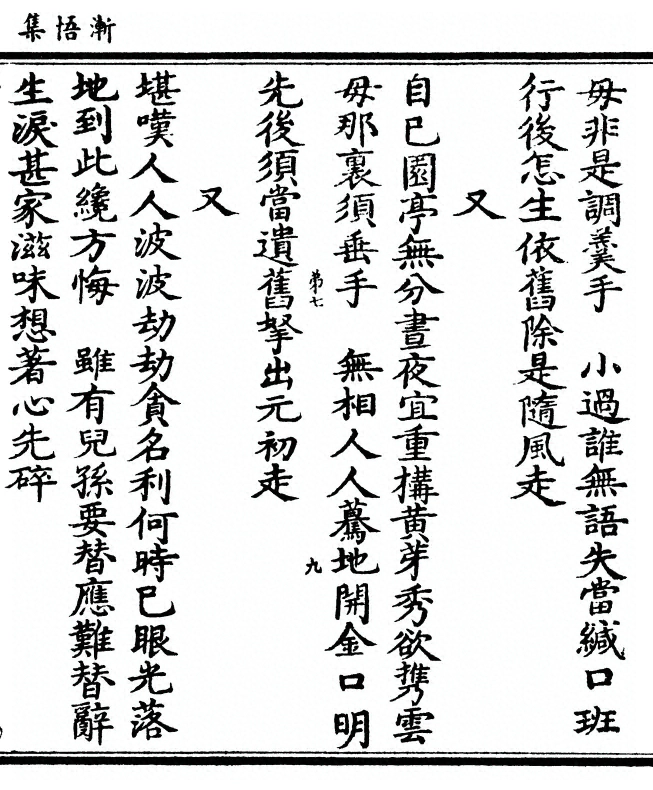 漸悟集
毋非是調羹手　小過誰無語失當緘口班
行後怎生依舊除是隨風走
又
自巳園亭無分晝夜宜重搆黄芽秀欲攜雲
毋那裏須垂手　無相人人驀地開金口明
弟七　九
先後須當遺舊拏出元初走
又
堪嘆人人波波劫劫貪名利何時巳眼光落
地到此纔方悔　雖有兒孫要替應難替辭
生淚甚家滋味想著心先碎